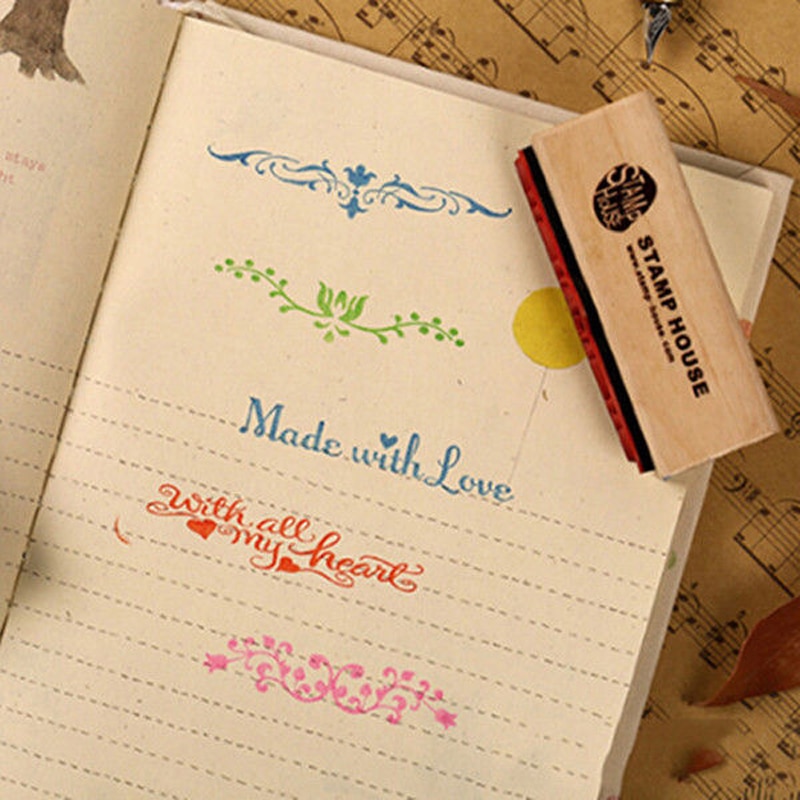 stays
ht
STAMP
HOUSE
STAMP HOUSE
www.stamp-house.com
Made with Love
With all
my heart